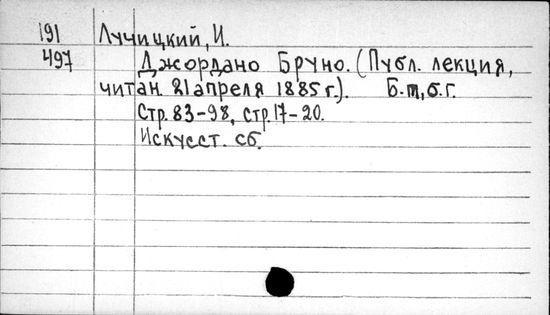 191 Лучицкий, И.
497 Джордано Бруно. (Публ. лекция,
читан. 21 апреля 1885 г.). Б.м, б.г.
Стр. 83-98, стр. 17-20.
Искусст. сб.